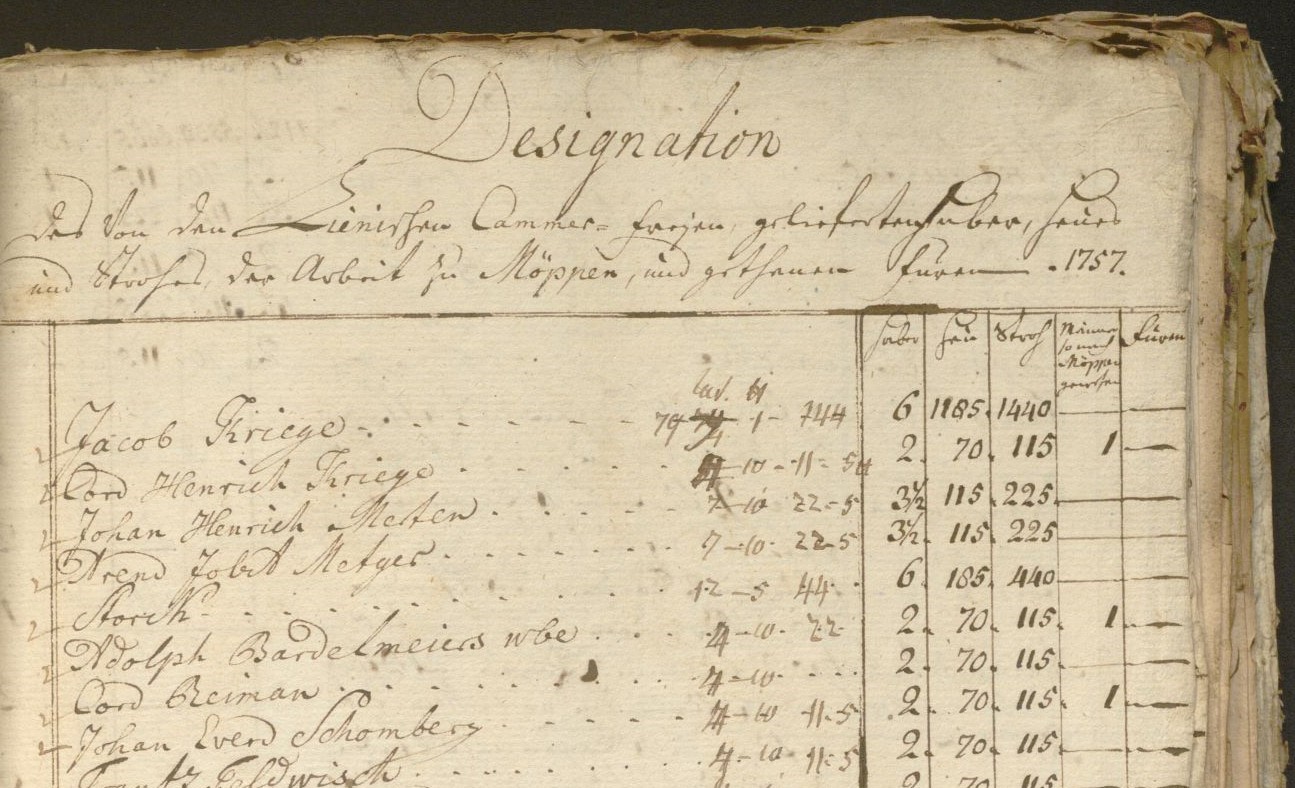 Designation
des Von den Lienischen Cammer= freÿen, gelieferten haber, heues
und Strohes, der Arbeit zu Möppen, und gethenen Furen 1757.
haber heu Stroh Männer so nach Möppen gewesen Furen
Jacob Kriege 6 1185. 1440
Cord Henrich Kriege 10 - 11 - 5 2. 70. 115 1
Johan Henrich Meten 7 - 10 22 - 5 3½ 115. 225.
Arend Jobst Metger 7 - 10. 22 - 5 3½. 115. 225
Storck 12 - 5 44 6. 185. 440
Adolph Bardelmeiers wbe 4 - 10. 22 2. 70. 115. 1
Cord Reiman 4 - 10 2. 70. 115.
Johan Everd Schomberg 4 - 10 11 - 5 2. 70. 115. 1
Frantz Feldwisch 4 - 10 11 - 5 2. 70. 115.
2 70 115